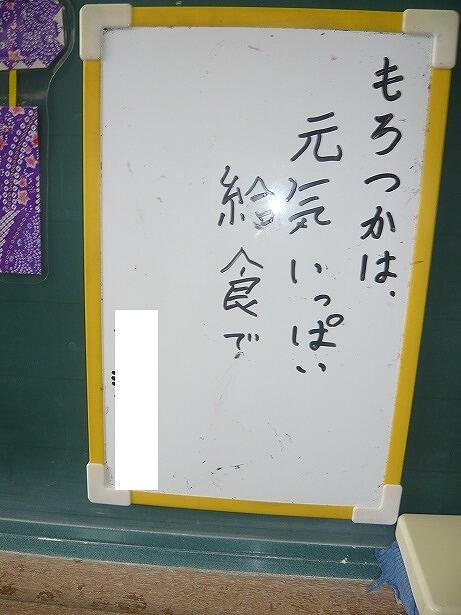 もろつかは、
元気いっぱい
給食で